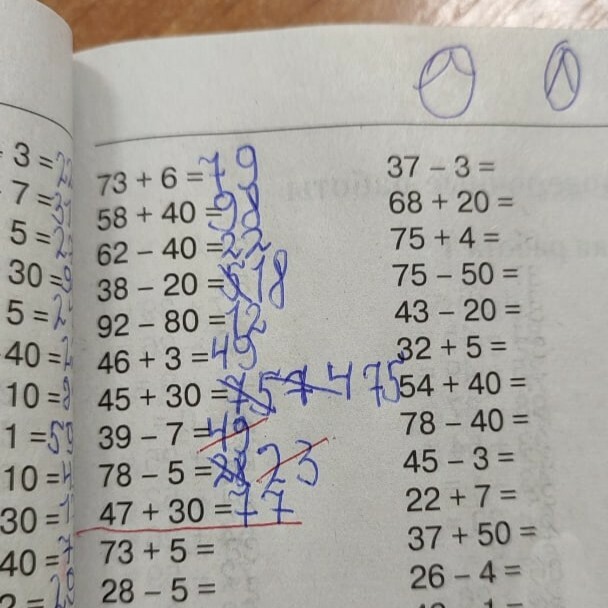 3 = 22
7 =
5 = 2
30 = 9
5 = 2
40 =
10 = 8
1 = 59
10 = 4
30 = 1
40 = 7
2 = 20
73 + 6 = 79
58 + 40 = 98
62 – 40 = 22
38 – 20 = 18
92 – 80 = 12
46 + 3 = 49
45 + 30 = 75
39 – 7 = 49
78 – 5 = 23
47 + 30 = 77
73 + 5 =
28 – 5 =
37 – 3 =
68 + 20 =
75 + 4 =
75 – 50 =
43 – 20 =
32 + 5 =
54 + 40 =
78 – 40 =
45 – 3 =
22 + 7 =
37 + 50 =
26 – 4 =